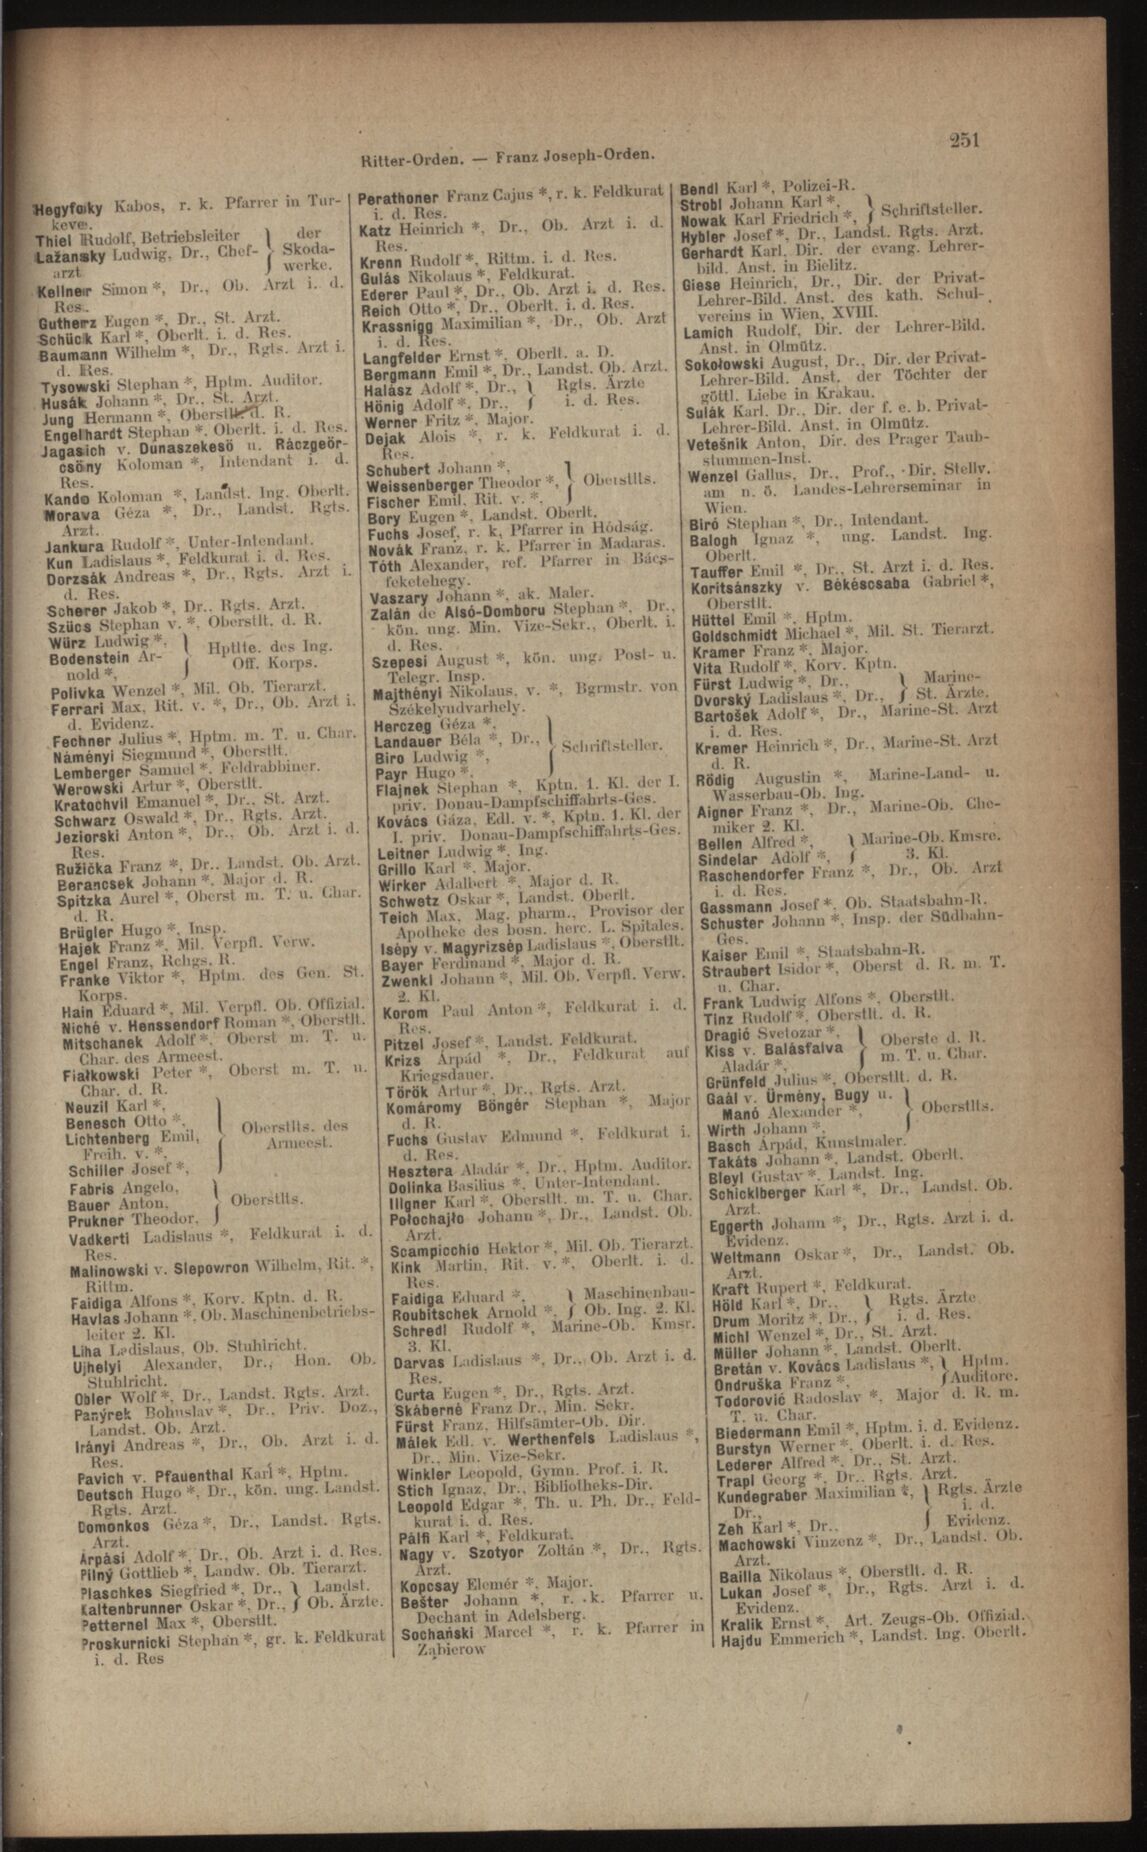 251
Ritter-Orden. — Franz Joseph-Orden.
Hegyfoky Kabos, r. k. Pfarrer in Tur-
keve.
Thiel Rudolf, Betriebsleiter } der
Lažansky Ludwig, Dr., Chef- } Skoda-
arzt } werke.
Kellner Simon *, Dr., Ob. Arzt i. d.
Res.
Gutherz Eugen *, Dr., St. Arzt.
Schück Karl *, Oberlt. i. d. Res.
Baumann Wilhelm *, Dr., Rgts. Arzt i.
d. Res.
Tysowski Stephan *, Hptm. Auditor.
Husák Johann *, Dr., St. Arzt.
Jung Hermann *, Oberstlt. d. R.
Engelhardt Stephan *, Oberlt. i. d. Res.
Jagasich v. Dunaszekesö u. Ráczgeör-
csöny Koloman *, Intendant i. d.
Res.
Kando Koloman *, Landst. Ing. Oberlt.
Morava Géza *, Dr., Landst. Rgts.
Arzt.
Jankura Rudolf *, Unter-Intendant.
Kun Ladislaus *, Feldkurat i. d. Res.
Dorzsák Andreas *, Dr., Rgts. Arzt i.
d. Res.
Scherer Jakob *, Dr., Rgts. Arzt.
Szücs Stephan v. *, Oberstlt. d. R.
Würz Ludwig *, } Hptlte. des Ing.
Bodenstein Ar- } Off. Korps.
nold *, }
Polivka Wenzel *, Mil. Ob. Tierarzt.
Ferrari Max, Rit. v. *, Dr., Ob. Arzt i.
d. Evidenz.
Fechner Julius *, Hptm. m. T. u. Char.
Náményi Siegmund *, Oberstlt.
Lemberger Samuel *, Feldrabbiner.
Werowski Artur *, Oberstlt.
Kratochvil Emanuel *, Dr., St. Arzt.
Schwarz Oswald *, Dr., Rgts. Arzt.
Jeziorski Anton *, Dr., Ob. Arzt i. d.
Res.
Ružička Franz *, Dr., Landst. Ob. Arzt.
Berancsek Johann *, Major d. R.
Spitzka Aurel *, Oberst m. T. u. Char.
d. R.
Brügler Hugo *, Insp.
Hajek Franz *, Mil. Verpfl. Verw.
Engel Franz, Rchgs. R.
Franke Viktor *, Hptm. des Gen. St.
Korps.
Hain Eduard *, Mil. Verpfl. Ob. Offizial.
Niché v. Henssendorf Roman *, Oberstlt.
Mitschanek Adolf *, Oberst m. T. u.
Char. des Armeest.
Fiałkowski Peter *, Oberst m. T. u.
Char. d. R.
Neuzil Karl *, }
Benesch Otto *, } Oberstlts. des
Lichtenberg Emil, } Armeest.
Freih. v. *, }
Schiller Josef *, }
Fabris Angelo, }
Bauer Anton, } Oberstlts.
Prukner Theodor, }
Vadkerti Ladislaus *, Feldkurat i. d.
Res.
Malinowski v. Slepowron Wilhelm, Rit. *,
Rittm.
Faidiga Alfons *, Korv. Kptn. d. R.
Havlas Johann *, Ob. Maschinenbetriebs-
leiter 2. Kl.
Liha Ladislaus, Ob. Stuhlricht.
Ujhelyi Alexander, Dr., Hon. Ob.
Stuhlricht.
Obler Wolf *, Dr., Landst. Rgts. Arzt.
Panýrek Bohuslav *, Dr., Priv. Doz.,
Landst. Ob. Arzt.
Irányi Andreas *, Dr., Ob. Arzt i. d.
Res.
Pavich v. Pfauenthal Karl *, Hptm.
Deutsch Hugo *, Dr., kön. ung. Landst.
Rgts. Arzt.
Domonkos Géza *, Dr., Landst. Rgts.
Arzt.
Árpási Adolf *, Dr., Ob. Arzt i. d. Res.
Pilný Gottlieb *, Landw. Ob. Tierarzt.
Plaschkes Siegfried *, Dr., } Landst.
Kaltenbrunner Oskar *, Dr., } Ob. Ärzte.
Petternel Max *, Oberstlt.
Proskurnicki Stephan *, gr. k. Feldkurat
i. d. Res
Perathoner Franz Cajus *, r. k. Feldkurat
i. d. Res.
Katz Heinrich *, Dr., Ob. Arzt i. d.
Res.
Krenn Rudolf *, Rittm. i. d. Res.
Gulás Nikolaus *, Feldkurat.
Ederer Paul *, Dr., Ob. Arzt i. d. Res.
Reich Otto *, Dr., Oberlt. i. d. Res.
Krassnigg Maximilian *, Dr., Ob. Arzt
i. d. Res.
Langfelder Ernst *, Oberlt. a. D.
Bergmann Emil *, Dr., Landst. Ob. Arzt.
Halász Adolf *, Dr., } Rgts. Ärzte
Hönig Adolf *, Dr., } i. d. Res.
Werner Fritz *, Major.
Dejak Alois *, r. k. Feldkurat i. d.
Res.
Schubert Johann *, }
Weissenberger Theodor *, } Oberstlts.
Fischer Emil, Rit. v. *, }
Bory Eugen *, Landst. Oberlt.
Fuchs Josef, r. k. Pfarrer in Hódság.
Novák Franz, r. k. Pfarrer in Madaras.
Tóth Alexander, ref. Pfarrer in Bács-
feketehegy.
Vaszary Johann *, ak. Maler.
Zalán de Alsó-Domboru Stephan *, Dr.,
kön. ung. Min. Vize-Sekr., Oberlt. i.
d. Res.
Szepesi August *, kön. ung. Post- u.
Telegr. Insp.
Majthényi Nikolaus, v. *, Bgrmstr. von
Székelyudvarhely.
Herczeg Géza *, }
Landauer Béla *, Dr., } Schriftsteller.
Biro Ludwig *, }
Payr Hugo *, }
Flajnek Stephan *, Kptn. 1. Kl. der I.
priv. Donau-Dampfschiffahrts-Ges.
Kovács Gáza, Edl. v. *, Kptn. 1. Kl. der
I. priv. Donau-Dampfschiffahrts-Ges.
Leitner Ludwig *, Ing.
Grillo Karl *, Major.
Wirker Adalbert *, Major d. R.
Schwetz Oskar *, Landst. Oberlt.
Teich Max, Mag. pharm., Provisor der
Apotheke des bosn. herc. L. Spitales.
Isépy v. Magyrizsép Ladislaus *, Oberstlt.
Bayer Ferdinand *, Major d. R.
Zwenkl Johann *, Mil. Ob. Verpfl. Verw.
2. Kl.
Korom Paul Anton *, Feldkurat i. d.
Res.
Pitzel Josef *, Landst. Feldkurat.
Krizs Árpád *, Dr., Feldkurat auf
Kriegsdauer.
Török Artur *, Dr., Rgts. Arzt.
Komáromy Böngér Stephan *, Major
d. R.
Fuchs Gustav Edmund *, Feldkurat i.
d. Res.
Hesztera Aladár *, Dr., Hptm. Auditor.
Dolinka Basilius *, Unter-Intendant.
Illgner Karl *, Oberstlt. m. T. u. Char.
Połochajło Johann *, Dr., Landst. Ob.
Arzt.
Scampicchio Hektor *, Mil. Ob. Tierarzt.
Kink Martin, Rit. v. *, Oberlt. i. d.
Res.
Faidiga Eduard *, } Maschinenbau-
Roubitschek Arnold *, } Ob. Ing. 2. Kl.
Schredl Rudolf *, Marine-Ob. Kmsr.
3. Kl.
Darvas Ladislaus *, Dr., Ob. Arzt i. d.
Res.
Curta Eugen *, Dr., Rgts. Arzt.
Skáberné Franz Dr., Min. Sekr.
Fürst Franz, Hilfsämter-Ob. Dir.
Málek Edl. v. Werthenfels Ladislaus *,
Dr., Min. Vize-Sekr.
Winkler Leopold, Gymn. Prof. i. R.
Stich Ignaz, Dr., Bibliotheks-Dir.
Leopold Edgar *, Th. u. Ph. Dr., Feld-
kurat i. d. Res.
Pálfi Karl *, Feldkurat.
Nagy v. Szotyor Zoltán *, Dr., Rgts.
Arzt.
Kopcsay Elemér *, Major.
Bešter Johann *, r. k. Pfarrer u.
Dechant in Adelsberg.
Sochański Marcel *, r. k. Pfarrer in
Zabierow
Bendl Karl *, Polizei-R.
Strobl Johann Karl *, } Schriftsteller.
Nowak Karl Friedrich *, }
Hybler Josef *, Dr., Landst. Rgts. Arzt.
Gerhardt Karl, Dir. der evang. Lehrer-
bild. Anst. in Bielitz.
Giese Heinrich, Dr., Dir. der Privat-
Lehrer-Bild. Anst. des kath. Schul-
vereins in Wien, XVIII.
Lamich Rudolf, Dir. der Lehrer-Bild.
Anst. in Olmütz.
Sokołowski August, Dr., Dir. der Privat-
Lehrer-Bild. Anst. der Töchter der
göttl. Liebe in Krakau.
Sulák Karl, Dr., Dir. der f. e. b. Privat-
Lehrer-Bild. Anst. in Olmütz.
Vetešnik Anton, Dir. des Prager Taub-
stummen-Inst.
Wenzel Gallus, Dr., Prof., Dir. Stellv.
am n. ö. Landes-Lehrerseminar in
Wien.
Biró Stephan *, Dr., Intendant.
Balogh Ignaz *, ung. Landst. Ing.
Oberlt.
Tauffer Emil *, Dr., St. Arzt i. d. Res.
Koritsánszky v. Békéscsaba Gabriel *,
Oberstlt.
Hüttel Emil *, Hptm.
Goldschmidt Michael *, Mil. St. Tierarzt.
Kramer Franz *, Major.
Vita Rudolf *, Korv. Kptn.
Fürst Ludwig *, Dr., } Marine-
Dvorský Ladislaus *, Dr., } St. Ärzte.
Bartošek Adolf *, Dr., Marine-St. Arzt
i. d. Res.
Kremer Heinrich *, Dr., Marine-St. Arzt
d. R.
Rödig Augustin *, Marine-Land- u.
Wasserbau-Ob. Ing.
Aigner Franz *, Dr., Marine-Ob. Che-
miker 2. Kl.
Bellen Alfred *, } Marine-Ob. Kmsre.
Sindelar Adolf *, } 3. Kl.
Raschendorfer Franz *, Dr., Ob. Arzt
i. d. Res.
Gassmann Josef *, Ob. Staatsbahn-R.
Schuster Johann *, Insp. der Südbahn-
Ges.
Kaiser Emil *, Staatsbahn-R.
Straubert Isidor *, Oberst d. R. m. T.
u. Char.
Frank Ludwig Alfons *, Oberstlt.
Tinz Rudolf *, Oberstlt. d. R.
Dragić Svetozar *, } Oberste d. R.
Kiss v. Balásfalva } m. T. u. Char.
Aladár *, }
Grünfeld Julius *, Oberstlt. d. R.
Gaál v. Ürmény, Bugy u. }
Manó Alexander *, } Oberstlts.
Wirth Johann *, }
Basch Árpád, Kunstmaler.
Takáts Johann *, Landst. Oberlt.
Bleyl Gustav *, Landst. Ing.
Schicklberger Karl *, Dr., Landst. Ob.
Arzt.
Eggerth Johann *, Dr., Rgts. Arzt i. d.
Evidenz.
Weltmann Oskar *, Dr., Landst. Ob.
Arzt.
Kraft Rupert *, Feldkurat.
Höld Karl *, Dr., } Rgts. Ärzte
Drum Moritz *, Dr., } i. d. Res.
Michl Wenzel *, Dr., St. Arzt.
Müller Johann *, Landst. Oberlt.
Bretán v. Kovács Ladislaus *, } Hptm.
Ondruška Franz *, } Auditore.
Todorović Radoslav *, Major d. R. m.
T. u. Char.
Biedermann Emil *, Hptm. i. d. Evidenz.
Burstyn Werner *, Oberlt. i. d. Res.
Lederer Alfred *, Dr., St. Arzt.
Trapl Georg *, Dr., Rgts. Arzt.
Kundegraber Maximilian *, } Rgts. Ärzte
Dr., } i. d.
Zeh Karl *, Dr., } Evidenz.
Machowski Vinzenz *, Dr., Landst. Ob.
Arzt.
Bailla Nikolaus *, Oberstlt. d. R.
Lukan Josef *, Dr., Rgts. Arzt i. d.
Evidenz.
Kralik Ernst *, Art. Zeugs-Ob. Offizial.
Hajdu Emmerich *, Landst. Ing. Oberlt.